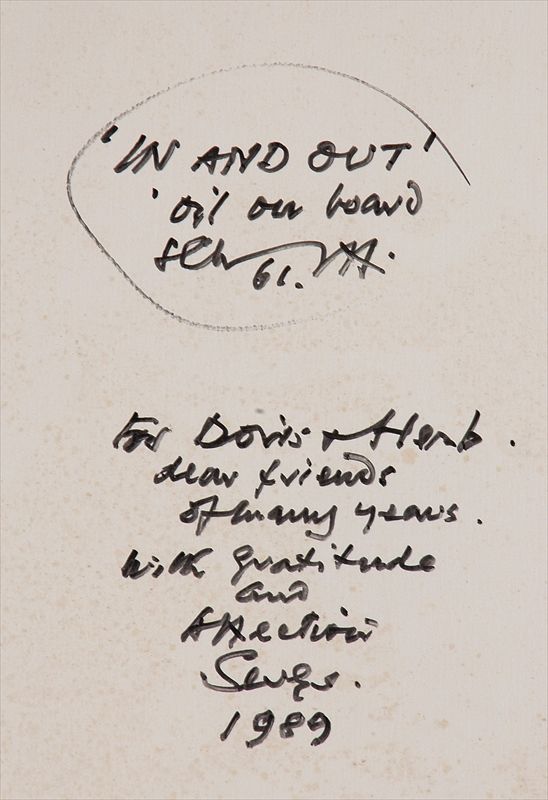 'IN AND OUT'
'oil on board
61.
For Doris + Herb.
dear friends
of many years.
with gratitude
and
Affection
Serge.
1989